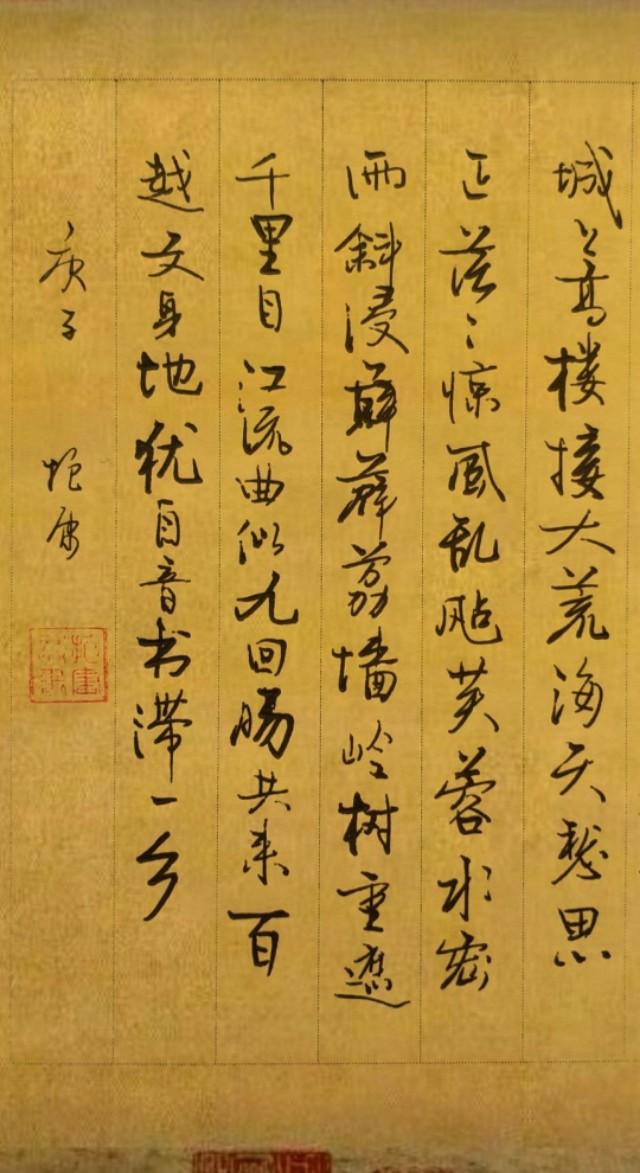 城上高楼接大荒海天愁思
正茫々惊风乱飐芙蓉水密
雨斜浸薜薜荔墙岭树重遮
千里目江流曲似九回肠共来百
越文身地犹自音书滞一乡
庚子